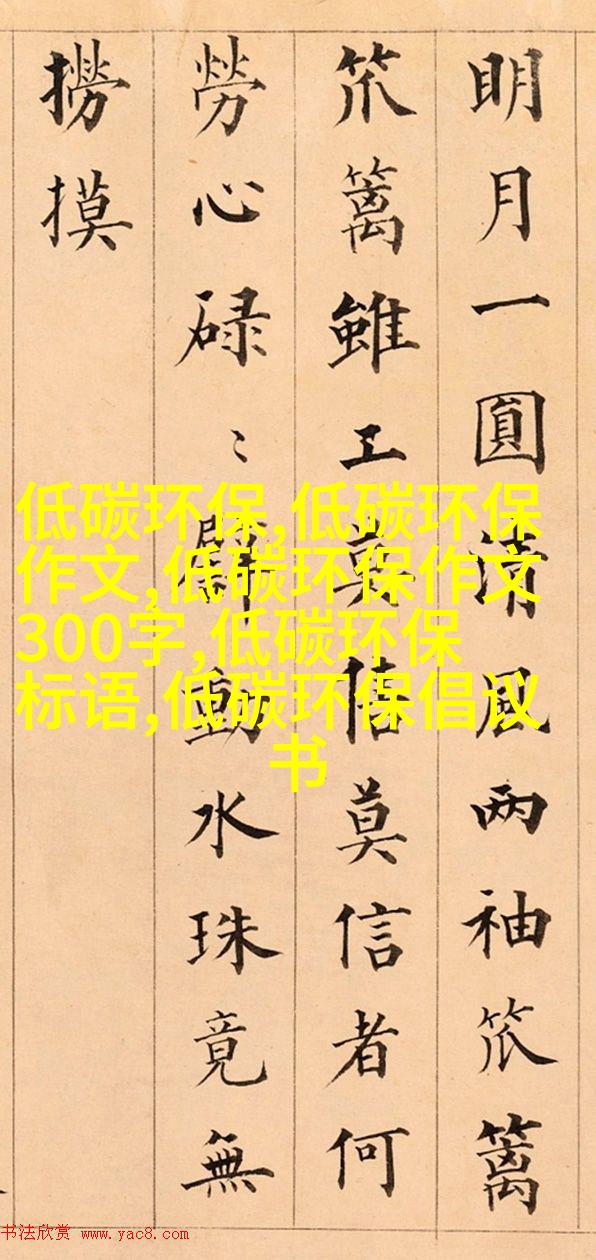 明月一圓清風两袖笊篱
笊篱雖工莫信莫信者何
勞心碌〻動水珠竟無
撈摸
低碳环保,低碳环保
作文,低碳环保作文
300字,低碳环保
标语,低碳环保倡议
书
书法欣赏 www.yac8.com